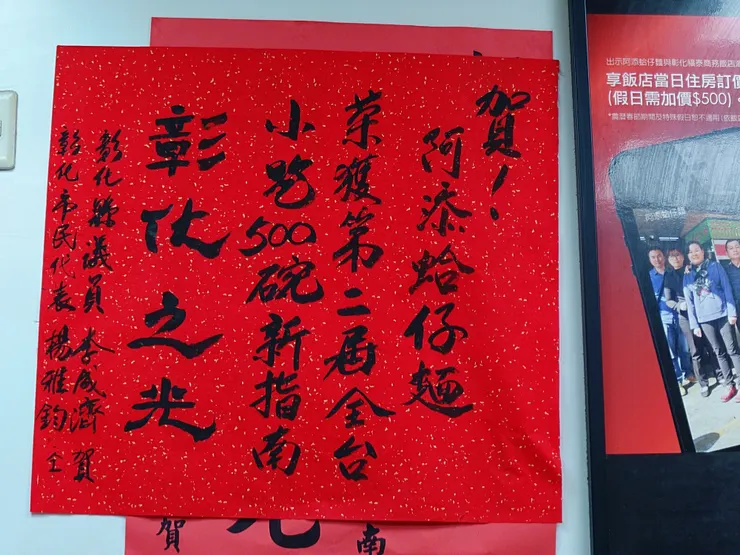 賀!
阿添蛤仔麵
荣獲第二屆全台
小吃500碗新指南
彰化之光
彰化縣議員 李成濟 賀
彰化市民代表 楊雅鈞 仝
賀
南
出示阿添蛤仔麵與彰化福泰商務飯店
享飯店當日住房訂價
(假日需加價$500)
*農曆春節期間及特殊假日恕不適用(依飯
阿添蛤仔麵